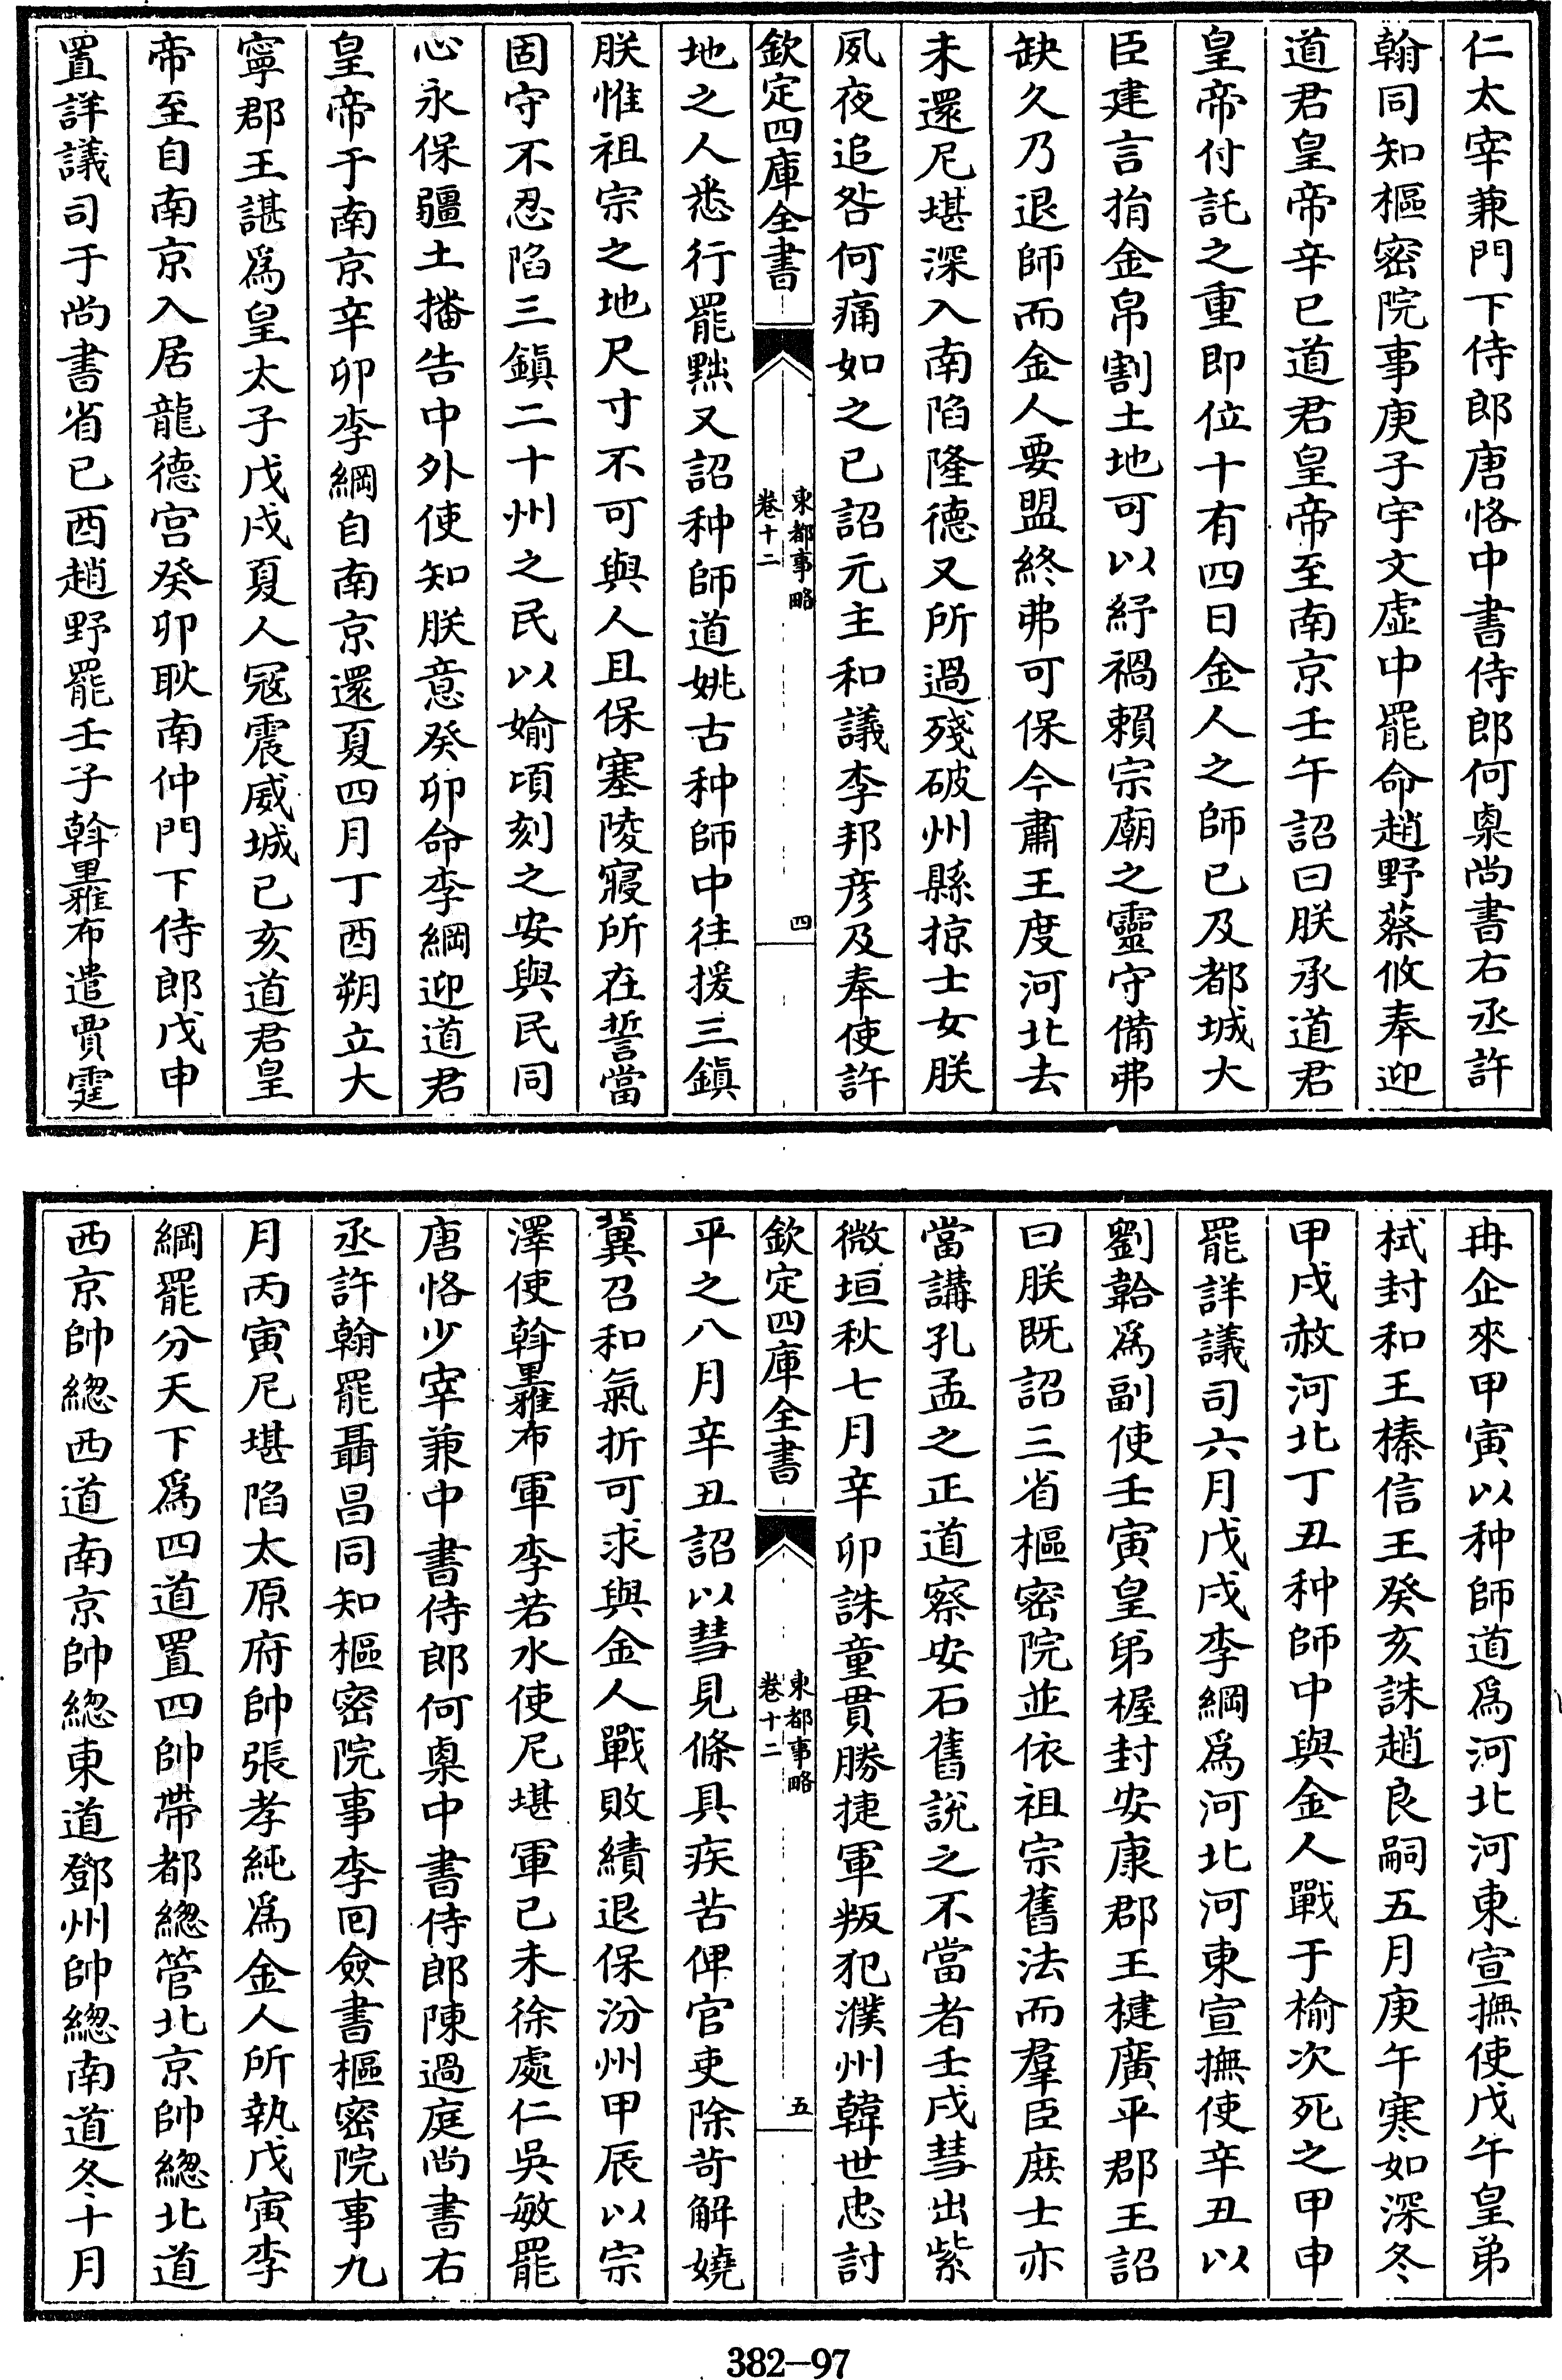 仁太宰兼門下侍郎唐恪中書侍郎何㮚尚書右丞許
翰同知樞密院事庚子宇文虛中罷命趙野蔡攸奉迎
道君皇帝辛巳道君皇帝至南京壬午詔曰朕承道君
皇帝付託之重即位十有四日金人之師已及都城大
臣建言捐金帛割土地可以紓禍賴宗廟之靈守備弗
缺久乃退師而金人要盟終弗可保今肅王度河北去
未還尼堪深入南陷隆德又所過殘破州縣掠士女朕
夙夜追咎何痛如之已詔元主和議李邦彥及奉使許
欽定四庫全書
東都事略
卷十二
四
地之人悉行罷黜又詔种師道姚古种師中往援三鎮
朕惟祖宗之地尺寸不可與人且保塞陵寢所在誓當
固守不忍陷三鎮二十州之民以婾頃刻之安與民同
心永保疆土播告中外使知朕意癸卯命李綱迎道君
皇帝于南京辛卯李綱自南京還夏四月丁酉朔立大
寧郡王諶爲皇太子戊戌夏人冦震威城己亥道君皇
帝至自南京入居龍德宮癸卯耿南仲門下侍郎戊申
置詳議司于尚書省已酉趙野罷壬子斡里雅布遣賈霆
冉企來甲寅以种師道爲河北河東宣撫使戊午皇弟
栻封和王榛信王癸亥誅趙良嗣五月庚午寒如深冬
甲戌赦河北丁丑种師中與金人戰于榆次死之甲申
罷詳議司六月戊戌李綱爲河北河東宣撫使辛丑以
劉韐爲副使壬寅皇弟楃封安康郡王楗廣平郡王詔
曰朕既詔三省樞密院並依祖宗舊法而羣臣庶士亦
當講孔孟之正道察安石舊說之不當者壬戌彗出紫
微垣秋七月辛卯誅童貫勝捷軍叛犯濮州韓世忠討
欽定四庫全書
東都事略
卷十二
五
平之八月辛丑詔以彗見條具疾苦俾官吏除苛解嬈
冀召和氣折可求與金人戰敗績退保汾州甲辰以宗
澤使斡里雅布軍李若水使尼堪軍已未徐處仁吳敏罷
唐恪少宰兼中書侍郎何㮚中書侍郎陳過庭尚書右
丞許翰罷聶昌同知樞密院事李回僉書樞密院事九
月丙寅尼堪陷太原府帥張孝純爲金人所執戊寅李
綱罷分天下爲四道置四帥帶都總管北京帥總北道
西京帥總西道南京帥總東道鄧州帥總南道冬十月
382—97